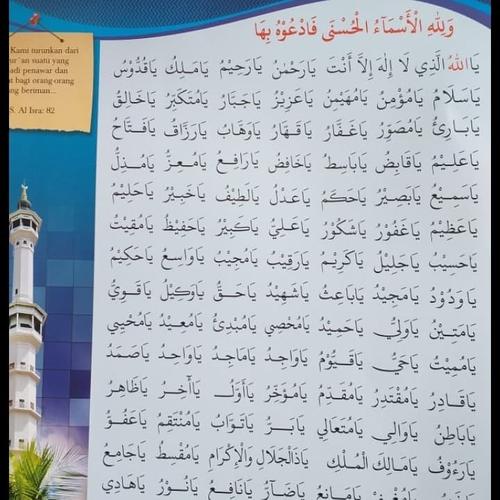 Kami turunkan dari
ur'an suatu yang
adi penawar dan
at bagi orang-orang
ng beriman...
S. Al Isra: 82
وَلِلّٰهِ الْأَسْمَآءُ الْحُسْنَى فَادْعُوْهُ بِهَا
يَا اَللهُ الَّذِي لَا إِلٰهَ إِلَّا أَنْتَ يَارَحْمٰنُ يَارَحِيْمُ يَامَلِكُ يَاقُدُّوْسُ
يَاسَلَامُ يَامُؤْمِنُ يَامُهَيْمِنُ يَاعَزِيْزُ يَاجَبَّارُ يَامُتَكَبِّرُ يَاخَالِقُ
يَابَارِئُ يَامُصَوِّرُ يَاغَفَّارُ يَاقَهَّارُ يَاوَهَّابُ يَارَزَّاقُ يَافَتَّاحُ
يَاعَلِيْمُ يَاقَابِضُ يَابَاسِطُ يَاخَافِضُ يَارَافِعُ يَامُعِزُّ يَامُذِلُّ
يَاسَمِيْعُ يَابَصِيْرُ يَاحَكَمُ يَاعَدْلُ يَالَطِيْفُ يَاخَبِيْرُ يَاحَلِيْمُ
يَاعَظِيْمُ يَاغَفُوْرُ يَاشَكُوْرُ يَاعَلِيُّ يَاكَبِيْرُ يَاحَفِيْظُ يَامُقِيْتُ
يَاحَسِيْبُ يَاجَلِيْلُ يَاكَرِيْمُ يَارَقِيْبُ يَامُجِيْبُ يَاوَاسِعُ يَاحَكِيْمُ
يَاوَدُوْدُ يَامَجِيْدُ يَابَاعِثُ يَاشَهِيْدُ يَاحَقُّ يَاوَكِيْلُ يَاقَوِيُّ
يَامَتِيْنُ يَاوَلِيُّ يَاحَمِيْدُ يَامُحْصِي يَامُبْدِئُ يَامُعِيْدُ يَامُحْيِي
يَامُمِيْتُ يَاحَيُّ يَاقَيُّوْمُ يَاوَاجِدُ يَامَاجِدُ يَاوَاحِدُ يَاصَمَدُ
يَاقَادِرُ يَامُقْتَدِرُ يَامُقَدِّمُ يَامُؤَخِّرُ يَاأَوَّلُ يَاآخِرُ يَاظَاهِرُ
يَابَاطِنُ يَاوَالِي يَامُتَعَالِي يَابَرُّ يَاتَوَّابُ يَامُنْتَقِمُ يَاعَفُوُّ
يَارَءُوْفُ يَامَالِكَ الْمُلْكِ يَاذَالْجَلَالِ وَالْإِكْرَامِ يَامُقْسِطُ يَاجَامِعُ
يَامَانِعُ يَاضَآرُّ يَانَافِعُ يَانُوْرُ يَاهَادِي